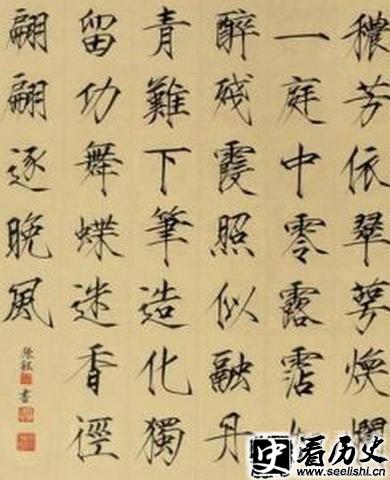 穠芳依翠萼煥爛
一庭中零露霑
醉殘霞照似融丹
青難下筆造化獨
留功舞蝶迷香徑
翩翩逐晚風
書
史看历史
www.seelishi.cn